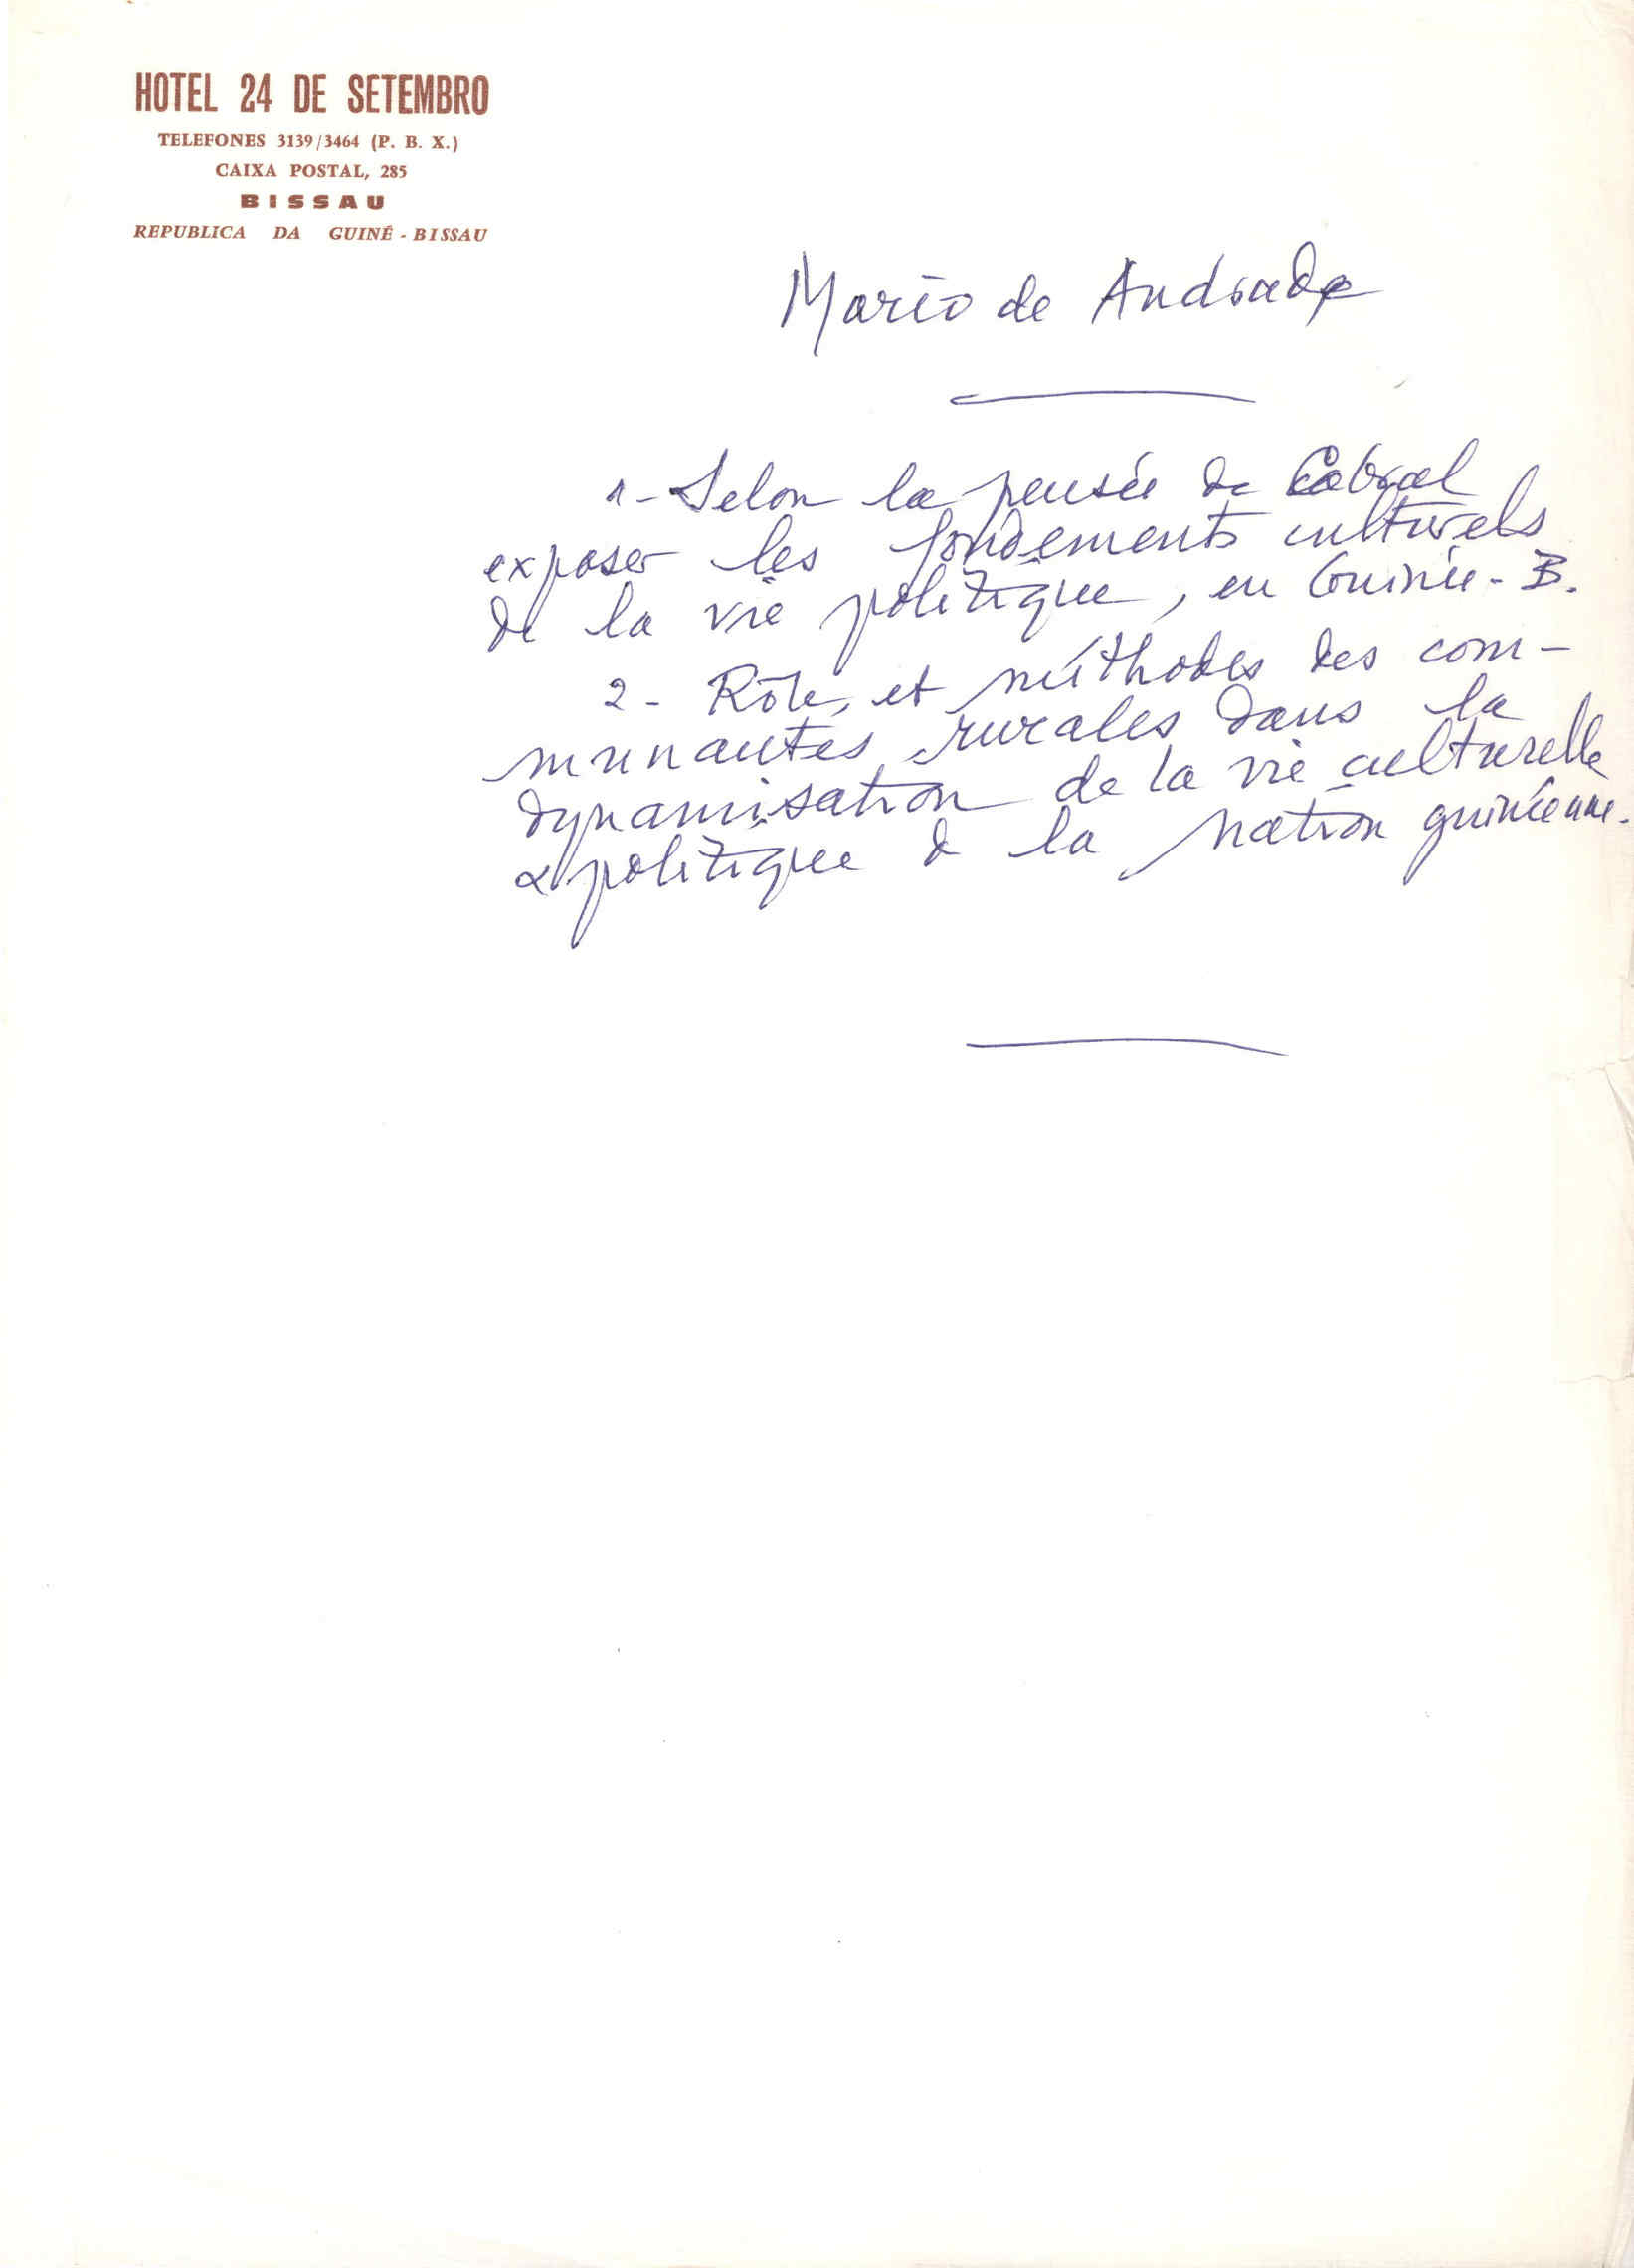 HOTEL 24 DE SETEMBRO
TELEFONES 3139/3464 (P. B. X.)
CAIXA POSTAL, 285
BISSAU
REPUBLICA DA GUINÉ - BISSAU
Mario de Andrade
1 - Selon la pensée de Cabral
exposer les fondements culturels
de la vie politique, en Guinée - B.
2 - Rôle, et méthodes des com-
munautés rurales dans la
dynamisation de la vie culturelle
& politique de la nation guinéenne.